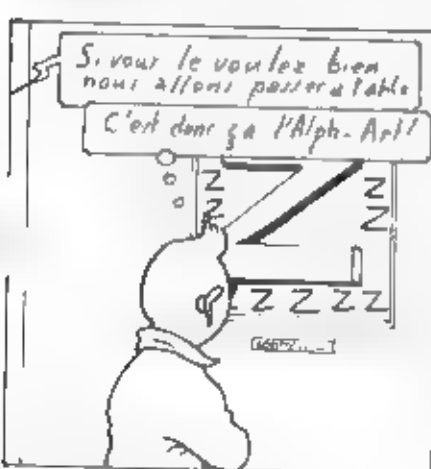 Si vous le voulez bien
nous allons passer à table
C'est donc ça l'Alph-Art!
Z Z
Z Z
Z Z Z Z Z